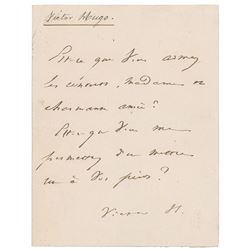 Victor Hugo.
Est-ce que Vous aimez
les , madame et
charmante amie?
Est-ce que Vous me
permettez d'en mettre
un à Vos pieds?
Victor H.